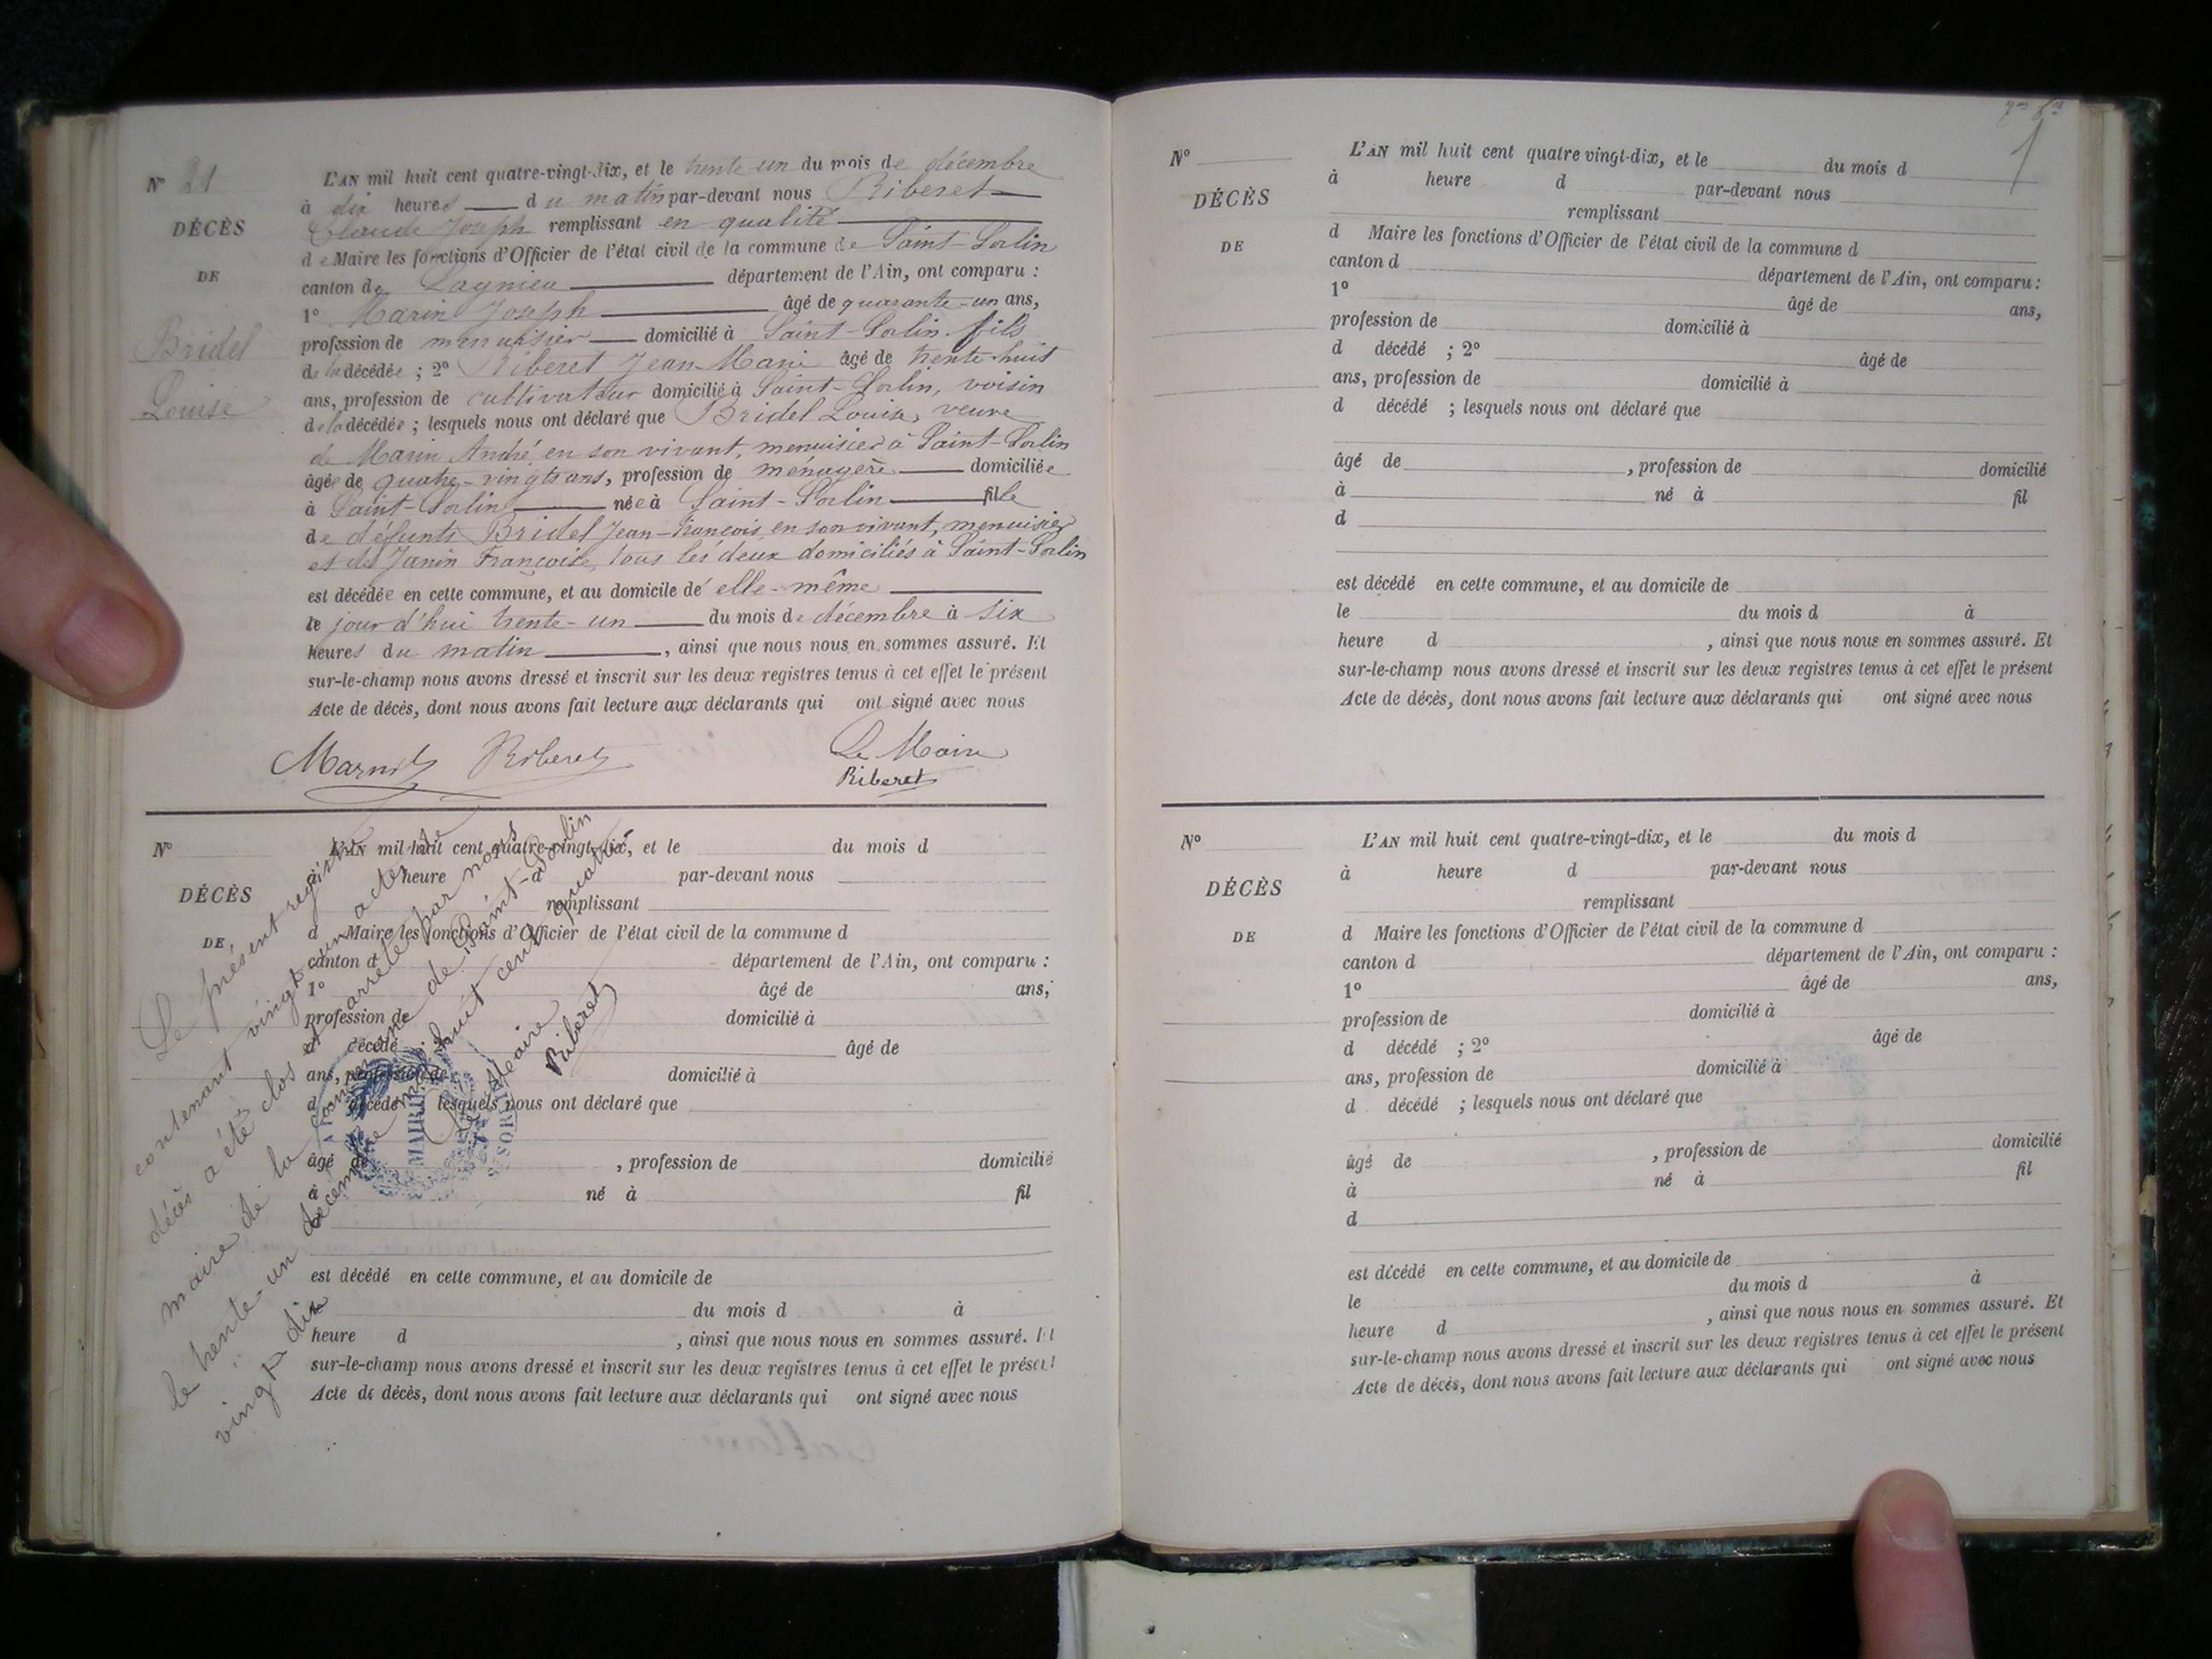 N° 21
DÉCÈS
DE
Bridel
Louise
L'AN mil huit cent quatre-vingt-dix, et le trente-un du mois de décembre
à dix heures du matin par-devant nous Riberet
Claude Joseph remplissant en qualité
de Maire les fonctions d'Officier de l'état civil de la commune de Saint-Sorlin
canton de Lagnieu département de l'Ain, ont comparu :
1° Marin Joseph âgé de quarante-un ans,
profession de menuisier domicilié à Saint-Sorlin fils
de la décédée ; 2° Riberet Jean-Marie âgé de trente-huit
ans, profession de cultivateur domicilié à Saint-Sorlin, voisin
de la décédée ; lesquels nous ont déclaré que Bridel Louise, veuve
de Marin André en son vivant, menuisier à Saint-Sorlin
âgée de quatre-vingts ans, profession de ménagère domiciliée
à Saint-Sorlin née à Saint-Sorlin fille
de défunts Bridel Jean-François, en son vivant, menuisier
et de Janin Françoise, tous les deux domiciliés à Saint-Sorlin
est décédée en cette commune, et au domicile de elle-même
le jour d'hui trente-un du mois de décembre à six
heures du matin, ainsi que nous nous en sommes assuré. Et
sur-le-champ nous avons dressé et inscrit sur les deux registres tenus à cet effet le présent
Acte de décès, dont nous avons fait lecture aux déclarants qui ont signé avec nous
Riberet Le Maire
Riberet
N°
DÉCÈS
DE
L'AN mil huit cent quatre-vingt-dix, et le du mois d
à heure d par-devant nous
remplissant
d Maire les fonctions d'Officier de l'état civil de la commune d
canton d département de l'Ain, ont comparu :
1° âgé de ans,
profession de domicilié à
d décédé ; 2° âgé de
ans, profession de domicilié à
d décédé ; lesquels nous ont déclaré que
âgé de , profession de domicilié
à né à fil
d
est décédé en cette commune, et au domicile de
le du mois d à
heure d , ainsi que nous nous en sommes assuré. Et
sur-le-champ nous avons dressé et inscrit sur les deux registres tenus à cet effet le présent
Acte de décès, dont nous avons fait lecture aux déclarants qui ont signé avec nous
Le présent registre
contenant vingt-un actes de
décès a été clos et arrêté par nous
maire de la commune de Saint-Sorlin
le trente-un décembre mil huit cent quatre
vingt-dix
Le Maire
Riberet
MAIRIE
N°
DÉCÈS
DE
L'AN mil huit cent quatre vingt-dix, et le du mois d
à heure d par-devant nous
remplissant
d Maire les fonctions d'Officier de l'état civil de la commune d
canton d département de l'Ain, ont comparu :
1° âgé de ans,
profession de domicilié à
d décédé ; 2° âgé de
ans, profession de domicilié à
d décédé ; lesquels nous ont déclaré que
âgé de , profession de domicilié
à né à fil
d
est décédé en cette commune, et au domicile de
le du mois d à
heure d , ainsi que nous nous en sommes assuré. Et
sur-le-champ nous avons dressé et inscrit sur les deux registres tenus à cet effet le présent
Acte de décès, dont nous avons fait lecture aux déclarants qui ont signé avec nous
N°
DÉCÈS
DE
L'AN mil huit cent quatre-vingt-dix, et le du mois d
à heure d par-devant nous
remplissant
d Maire les fonctions d'Officier de l'état civil de la commune d
canton d département de l'Ain, ont comparu :
1° âgé de ans,
profession de domicilié à
d décédé ; 2° âgé de
ans, profession de domicilié à
d décédé ; lesquels nous ont déclaré que
âgé de , profession de domicilié
à né à fil
d
est décédé en cette commune, et au domicile de
le du mois d à
heure d , ainsi que nous nous en sommes assuré. Et
sur-le-champ nous avons dressé et inscrit sur les deux registres tenus à cet effet le présent
Acte de décés, dont nous avons fait lecture aux déclarants qui ont signé avec nous